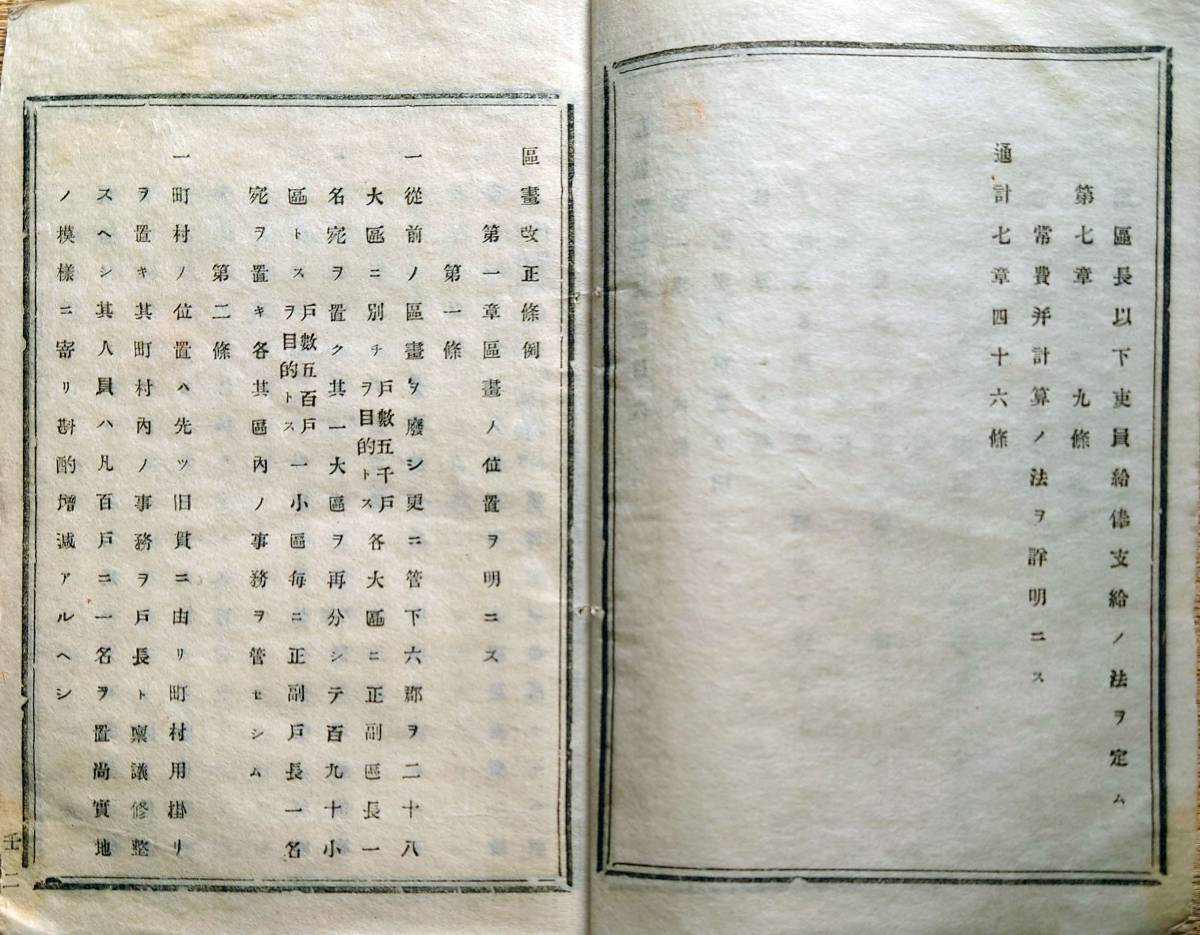 區長以下吏員給俸支給ノ法ヲ定ム
第七章 九條
常費幷計算ノ法ヲ詳明ニス
通計七章四十六條
區畫改正條例
第一章區畫ノ位置ヲ明ニス
第一條
一從前ノ區畫ヲ廢シ更ニ管下六郡ヲ二十八
大區ニ別チ戶數五千戶ヲ目的トス各大區ニ正副區長一
名宛ヲ置ク其一大區ヲ再分シテ百九十小
區トス戶數五百戶ヲ目的トス一小區每ニ正副戶長一名
宛ヲ置キ各其區內ノ事務ヲ管セシム
第二條
一町村ノ位置ハ先ツ旧貫ニ由リ町村用掛リ
ヲ置キ其町村內ノ事務ヲ戶長ト稟議修整
スヘシ其人員ハ凡百戶ニ一名ヲ置尚實地
ノ模樣ニ寄リ斟酌增減アルヘシ
壬 二